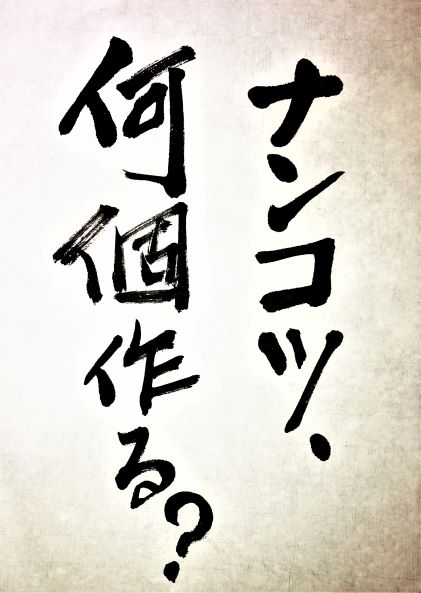 ナンコツ、
何個作る?